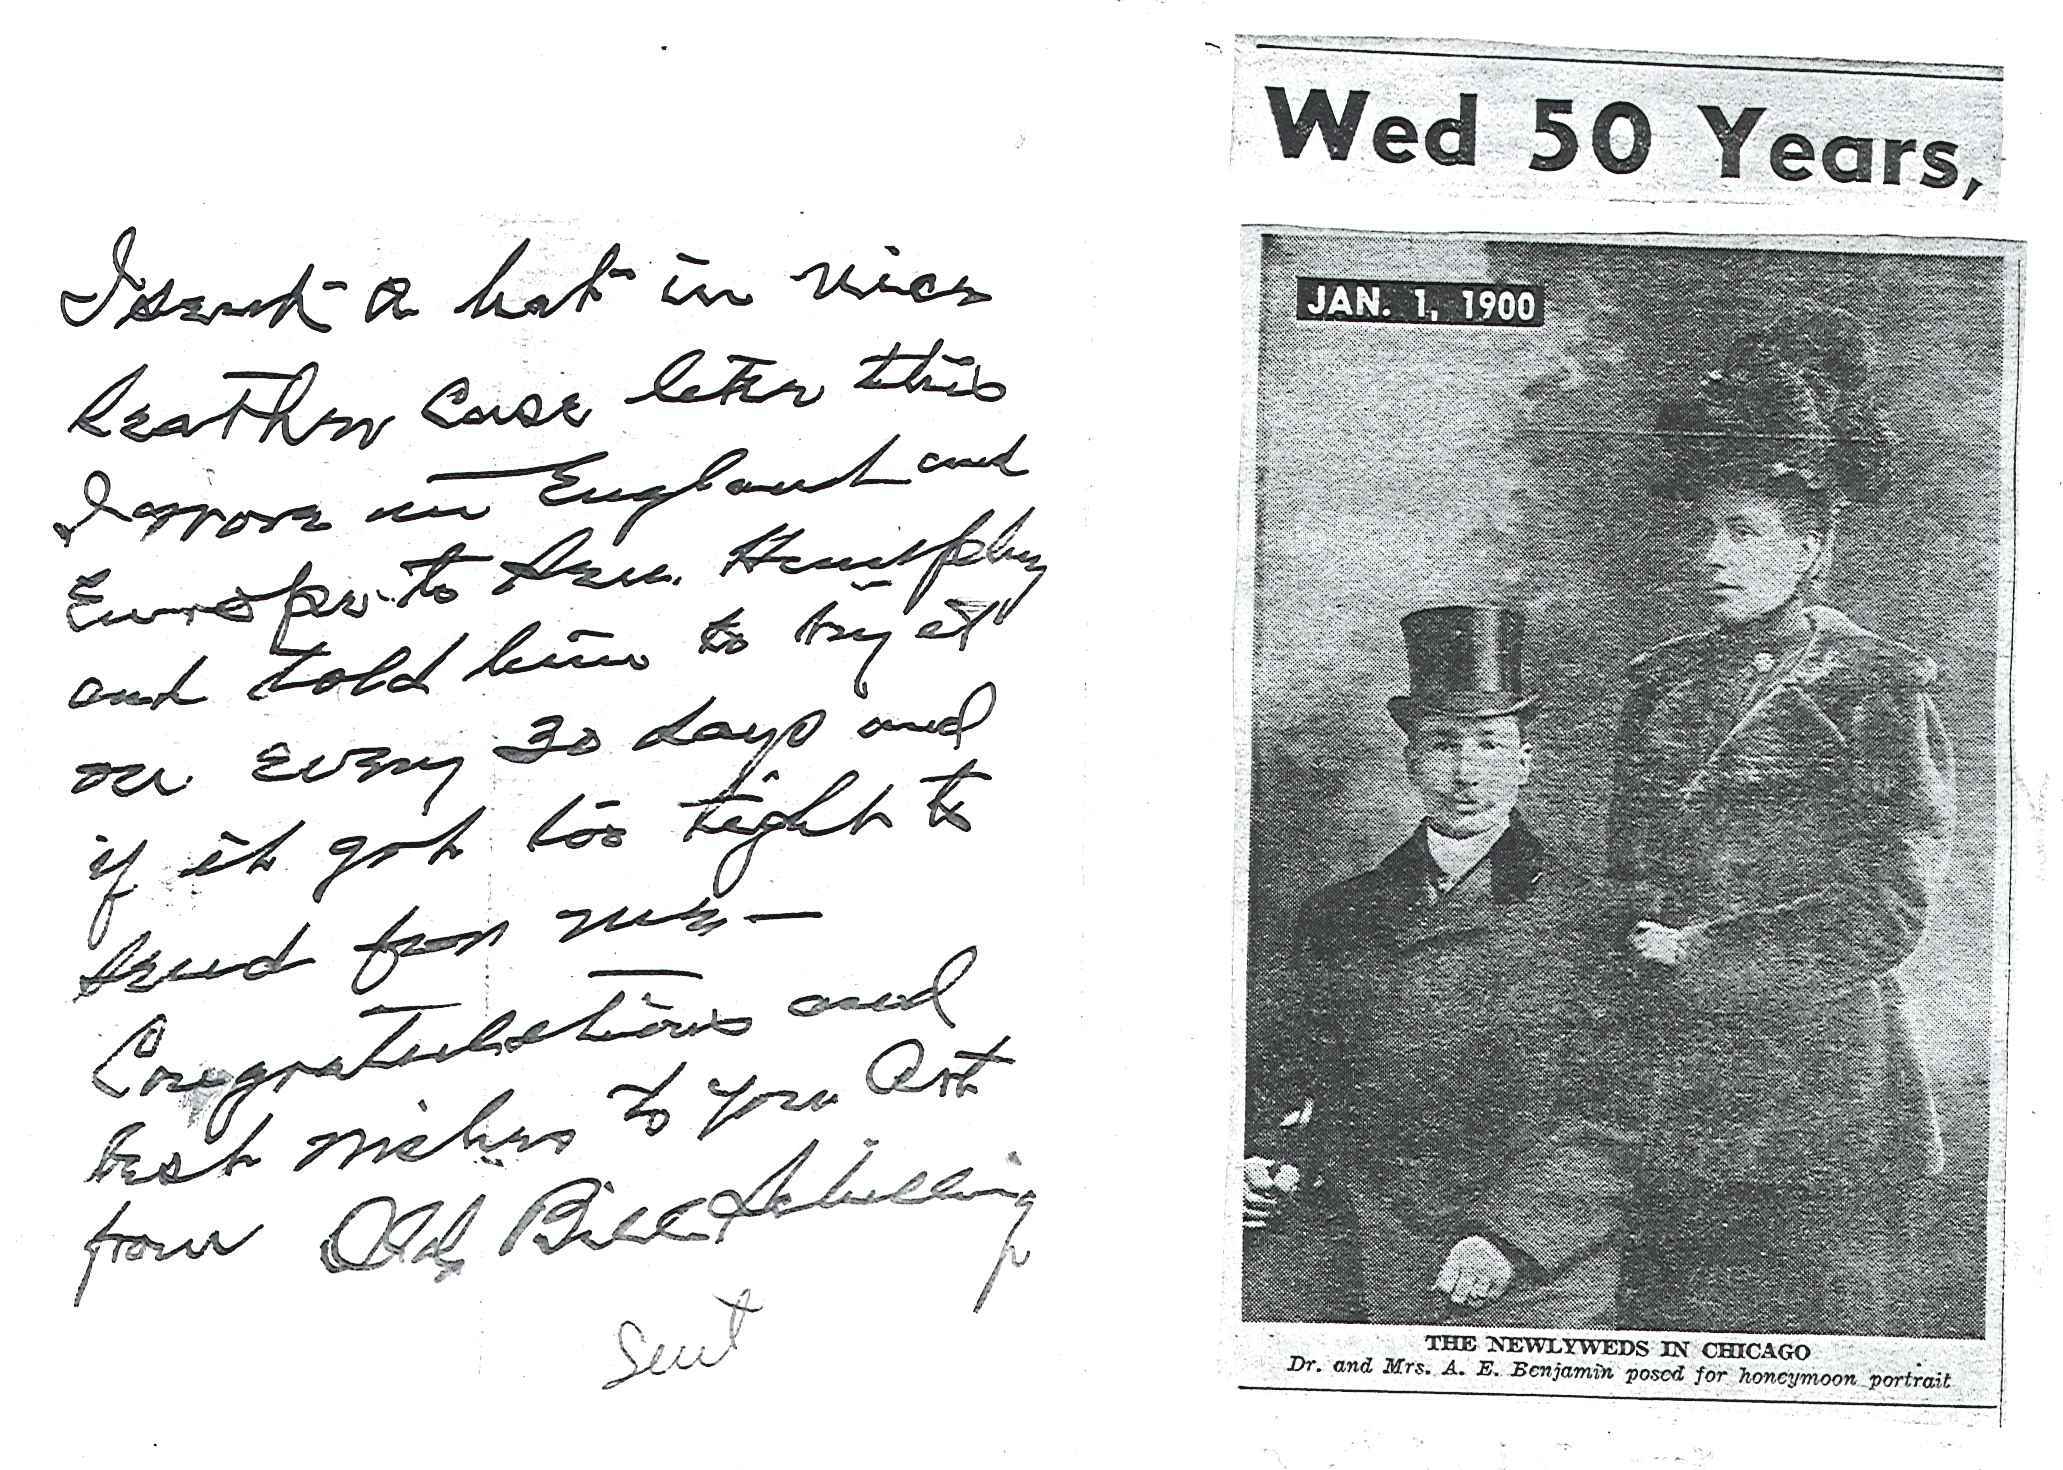 I sent a hat in nice
leather case later this
I wore in England and
Europe to Sen. Humphrey
and told him to try it
on every 30 days and
if it got too tight to
send for me —
Congratulations and
best wishes to you Art
from Old Bill Schilling
Sent
Wed 50 Years,
JAN. 1, 1900
THE NEWLYWEDS IN CHICAGO
Dr. and Mrs. A. E. Benjamin posed for honeymoon portrait